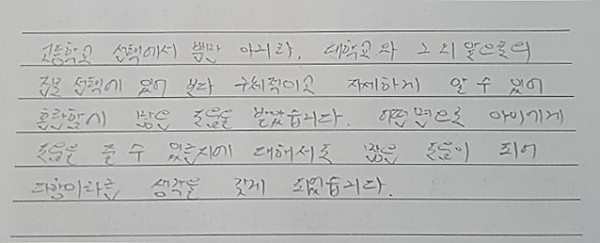 고등학교 선택에서 뿐만 아니라, 대학교와 그 외 앞으로의
진로 선택에 있어 보다 구체적이고 자세하게 알 수 있어
혼란함에 많은 도움을 받았습니다. 어떤 면으로 아이에게
도움을 줄 수 있는지에 대해서도 많은 도움이 되어
다행이라는 생각을 갖게 되었습니다.